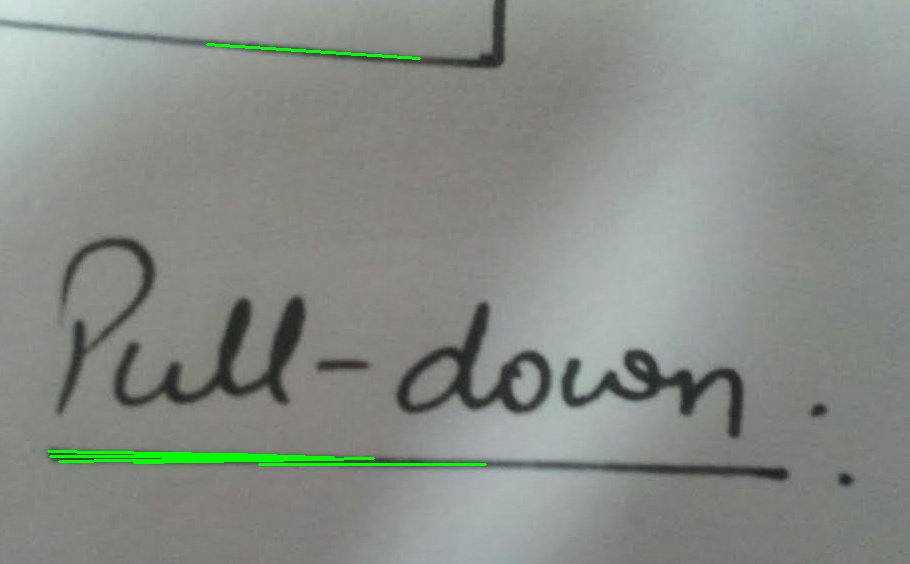 Pull-down :